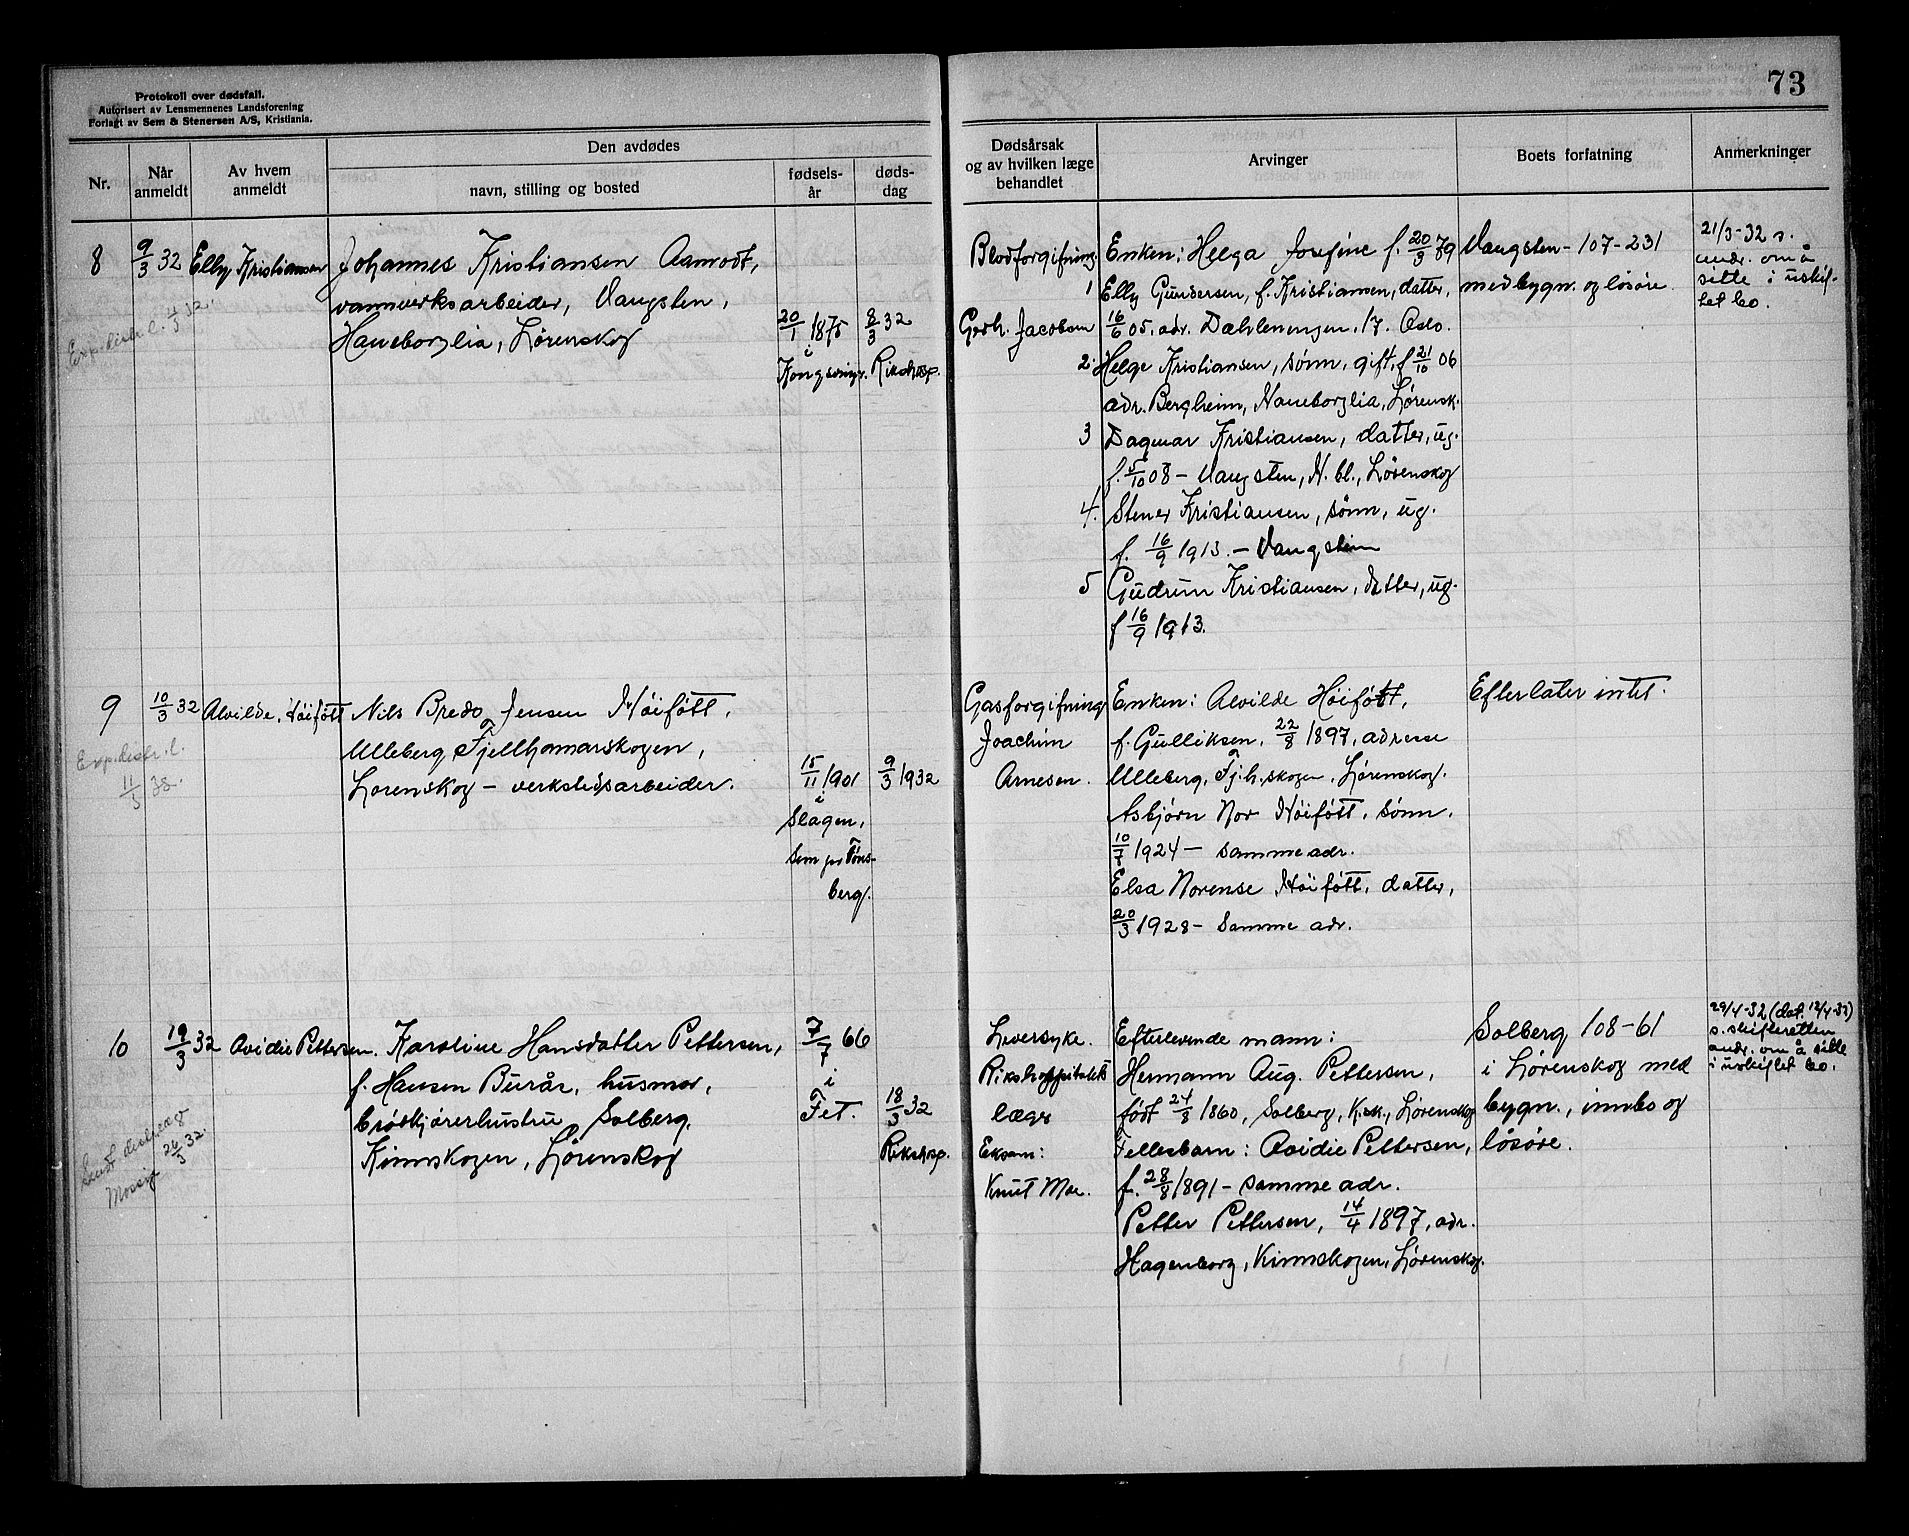 Protokoll over dødsfall.
Autorisert av Lensmennenes Landsforening
Forlagt av Sem & Stenersen A/S, Kristiania.
73
Nr.
Når anmeldt
Av hvem anmeldt
Den avdødes
navn, stilling og bosted
fødsels-
år
døds-
dag
Dødsårsak
og av hvilken læge
behandlet
Arvinger
Boets forfatning
Anmerkninger
8
9/3 32
Elly Kristiansen
Johannes Kristiansen Aamodt,
vannverksarbeider, Vangsten,
Haneborglia, Lørenskog
20/1 1875
i
Kongsving.
8/3 32
Rikshosp.
Exp. distr. l. 4/3 32.
Blodforgifning.
Gerh. Jacobsen
Enken: Helga Josefine f. 20/3 79
1 Elly Gundersen, f. Kristiansen, datter,
16/6 05, adr. Dahleningen, 17. Oslo.
2 Helge Kristiansen, sønn, gift, f 21/10 06
adr. Bergheim, Haneborglia, Lørensk.
3 Dagmar Kristiansen, datter, ug.
f. 5/10 08 - Vangsten, H. bl., Lörenskog
4. Stener Kristiansen, sønn, ug.
f. 16/9 1913. - Vangsten
5 Gudrun Kristiansen, datter, ug.
f 16/9 1913.
Vangsten - 107-231
med bygn. og lösöre.
21/3-32 s.
andr. om å
sitte i uskif-
tet bo.
9
10/3 32
Alvilde Höifött
Nils Bredo Jensen Höifött,
Ulleberg, Fjellhamarskogen,
Lørenskog - verkstedsarbeider.
15/11 1901
i
Slagen,
Sem pr Töns-
berg.
9/3 1932
Exp. distr. l.
11/3 32.
Gasforgifning
Joachim
Arnesen.
Enken: Alvilde Höifött,
f. Gulliksen, 22/8 1897, adresse
Ulleberg, Fj.h.skogen, Lørenskog.
Asbjørn Nor Höifött, sønn.
10/7 1924 - samme adr.
Elsa Norense Höifött, datter,
20/3 1928 - Samme adr.
Efterlater intet.
10
19/3 32
Ovidie Pettersen.
Karoline Hansdatter Pettersen,
f. Hansen Burår, husmor,
brøskjørerhustru Solberg,
Kinnskogen, Lørenskog
7/7 66
i
Fet.
18/3 32
Rikshosp.
26/3 32.
Leversyke.
Rikshospitalets
læge
Eksam:
Knut Moe.
Efterlevende mann:
Hermann Aug. Pettersen,
født 24/8 1860, Solberg, K.sk., Lørenskog
Fellesbarn: Ovidie Pettersen,
f. 28/8 1891 - samme adr.
Petter Pettersen, 14/4 1897, adr.
Hagenborg, Kinnskogen, Lørenskog.
Solberg 108-61
i Lørenskog med
bygn., innbo og
lösöre.
29/4-32 (dat. 12/4-32)
s. skifteretten
andr. om å sitte
i uskiftet bo.